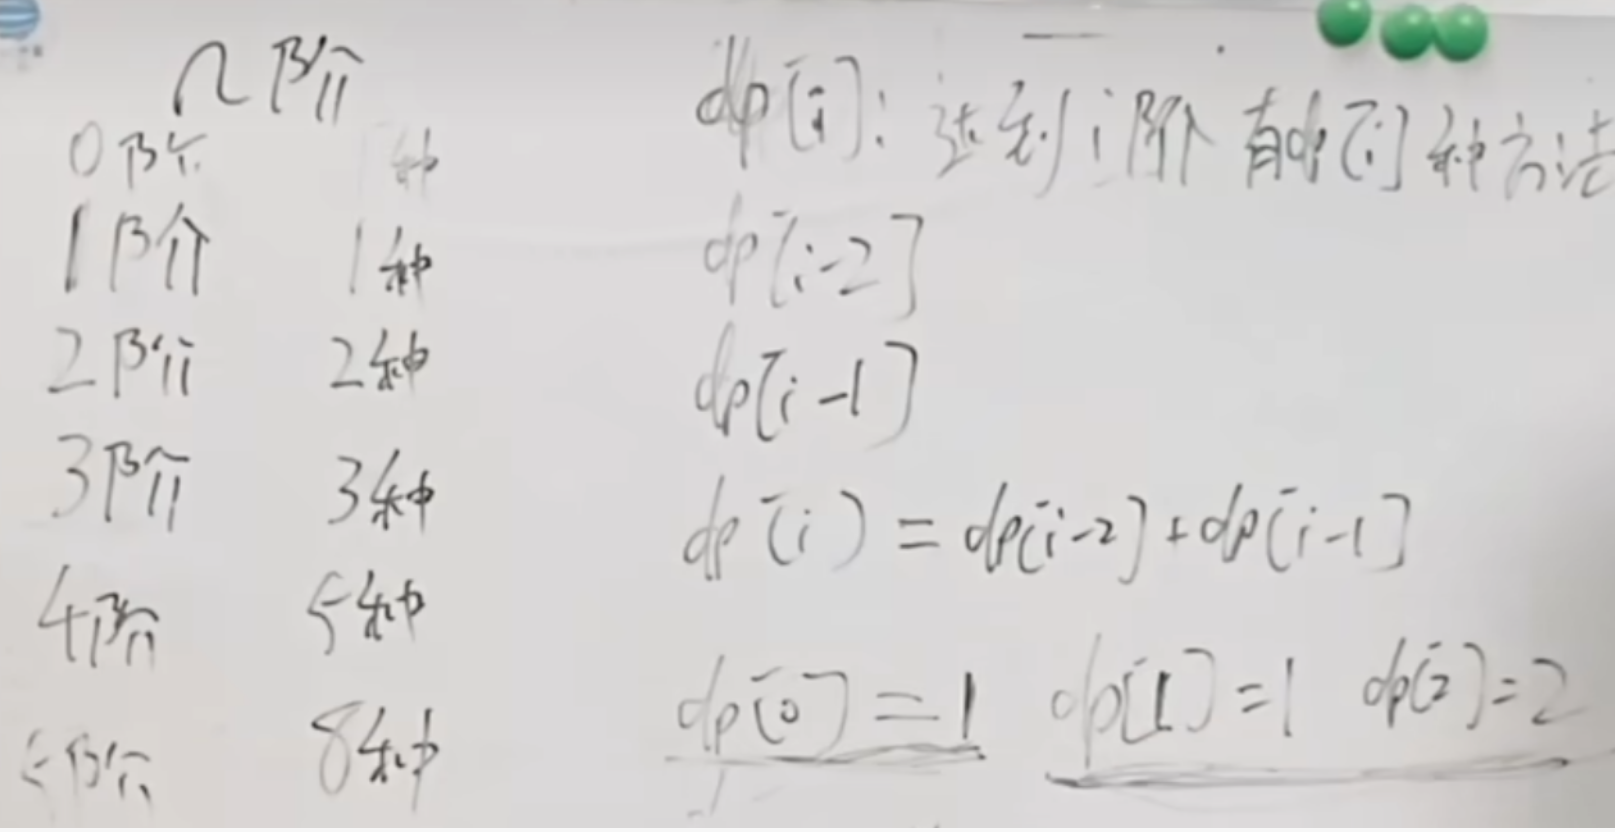 n阶
0阶 种
1阶 1种
2阶 2种
3阶 3种
4阶 5种
5阶 8种
dp[i]: 达到i阶有dp[i]种方法
dp[i-2]
dp[i-1]
dp[i] = dp[i-2]+dp[i-1]
dp[0]=1 dp[1]=1 dp[2]=2